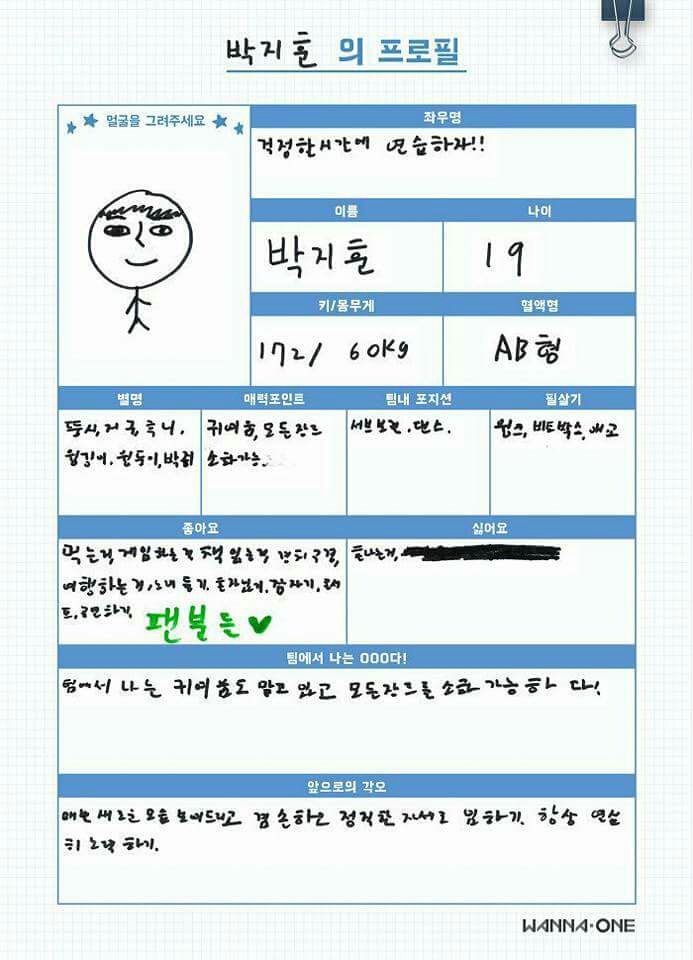 박지훈 의 프로필
얼굴을 그려주세요
좌우명
걱정할시간에 연습하자!!
이름
나이
박지훈
19
키/몸무게
혈액형
172/ 60Kg
AB형
별명
매력포인트
팀내 포지션
필살기
귀여움, 모든장르
소화가능
서브보컬, 댄스.
윙크, 비트박스, 애교
좋아요
싫어요
먹는것, 게임하는것
여행하는것, 노래 듣기
팬분들♥
팀에서 나는 OOO다!
팀에서 나는 귀여움도 맡고 있고 모든장르를 소화 가능하 다!
앞으로의 각오
매번 새로운 모습 보여드리고 겸손하고 정직한 자세로 임하기. 항상 열심
히 노력 하기.
WANNA·ONE